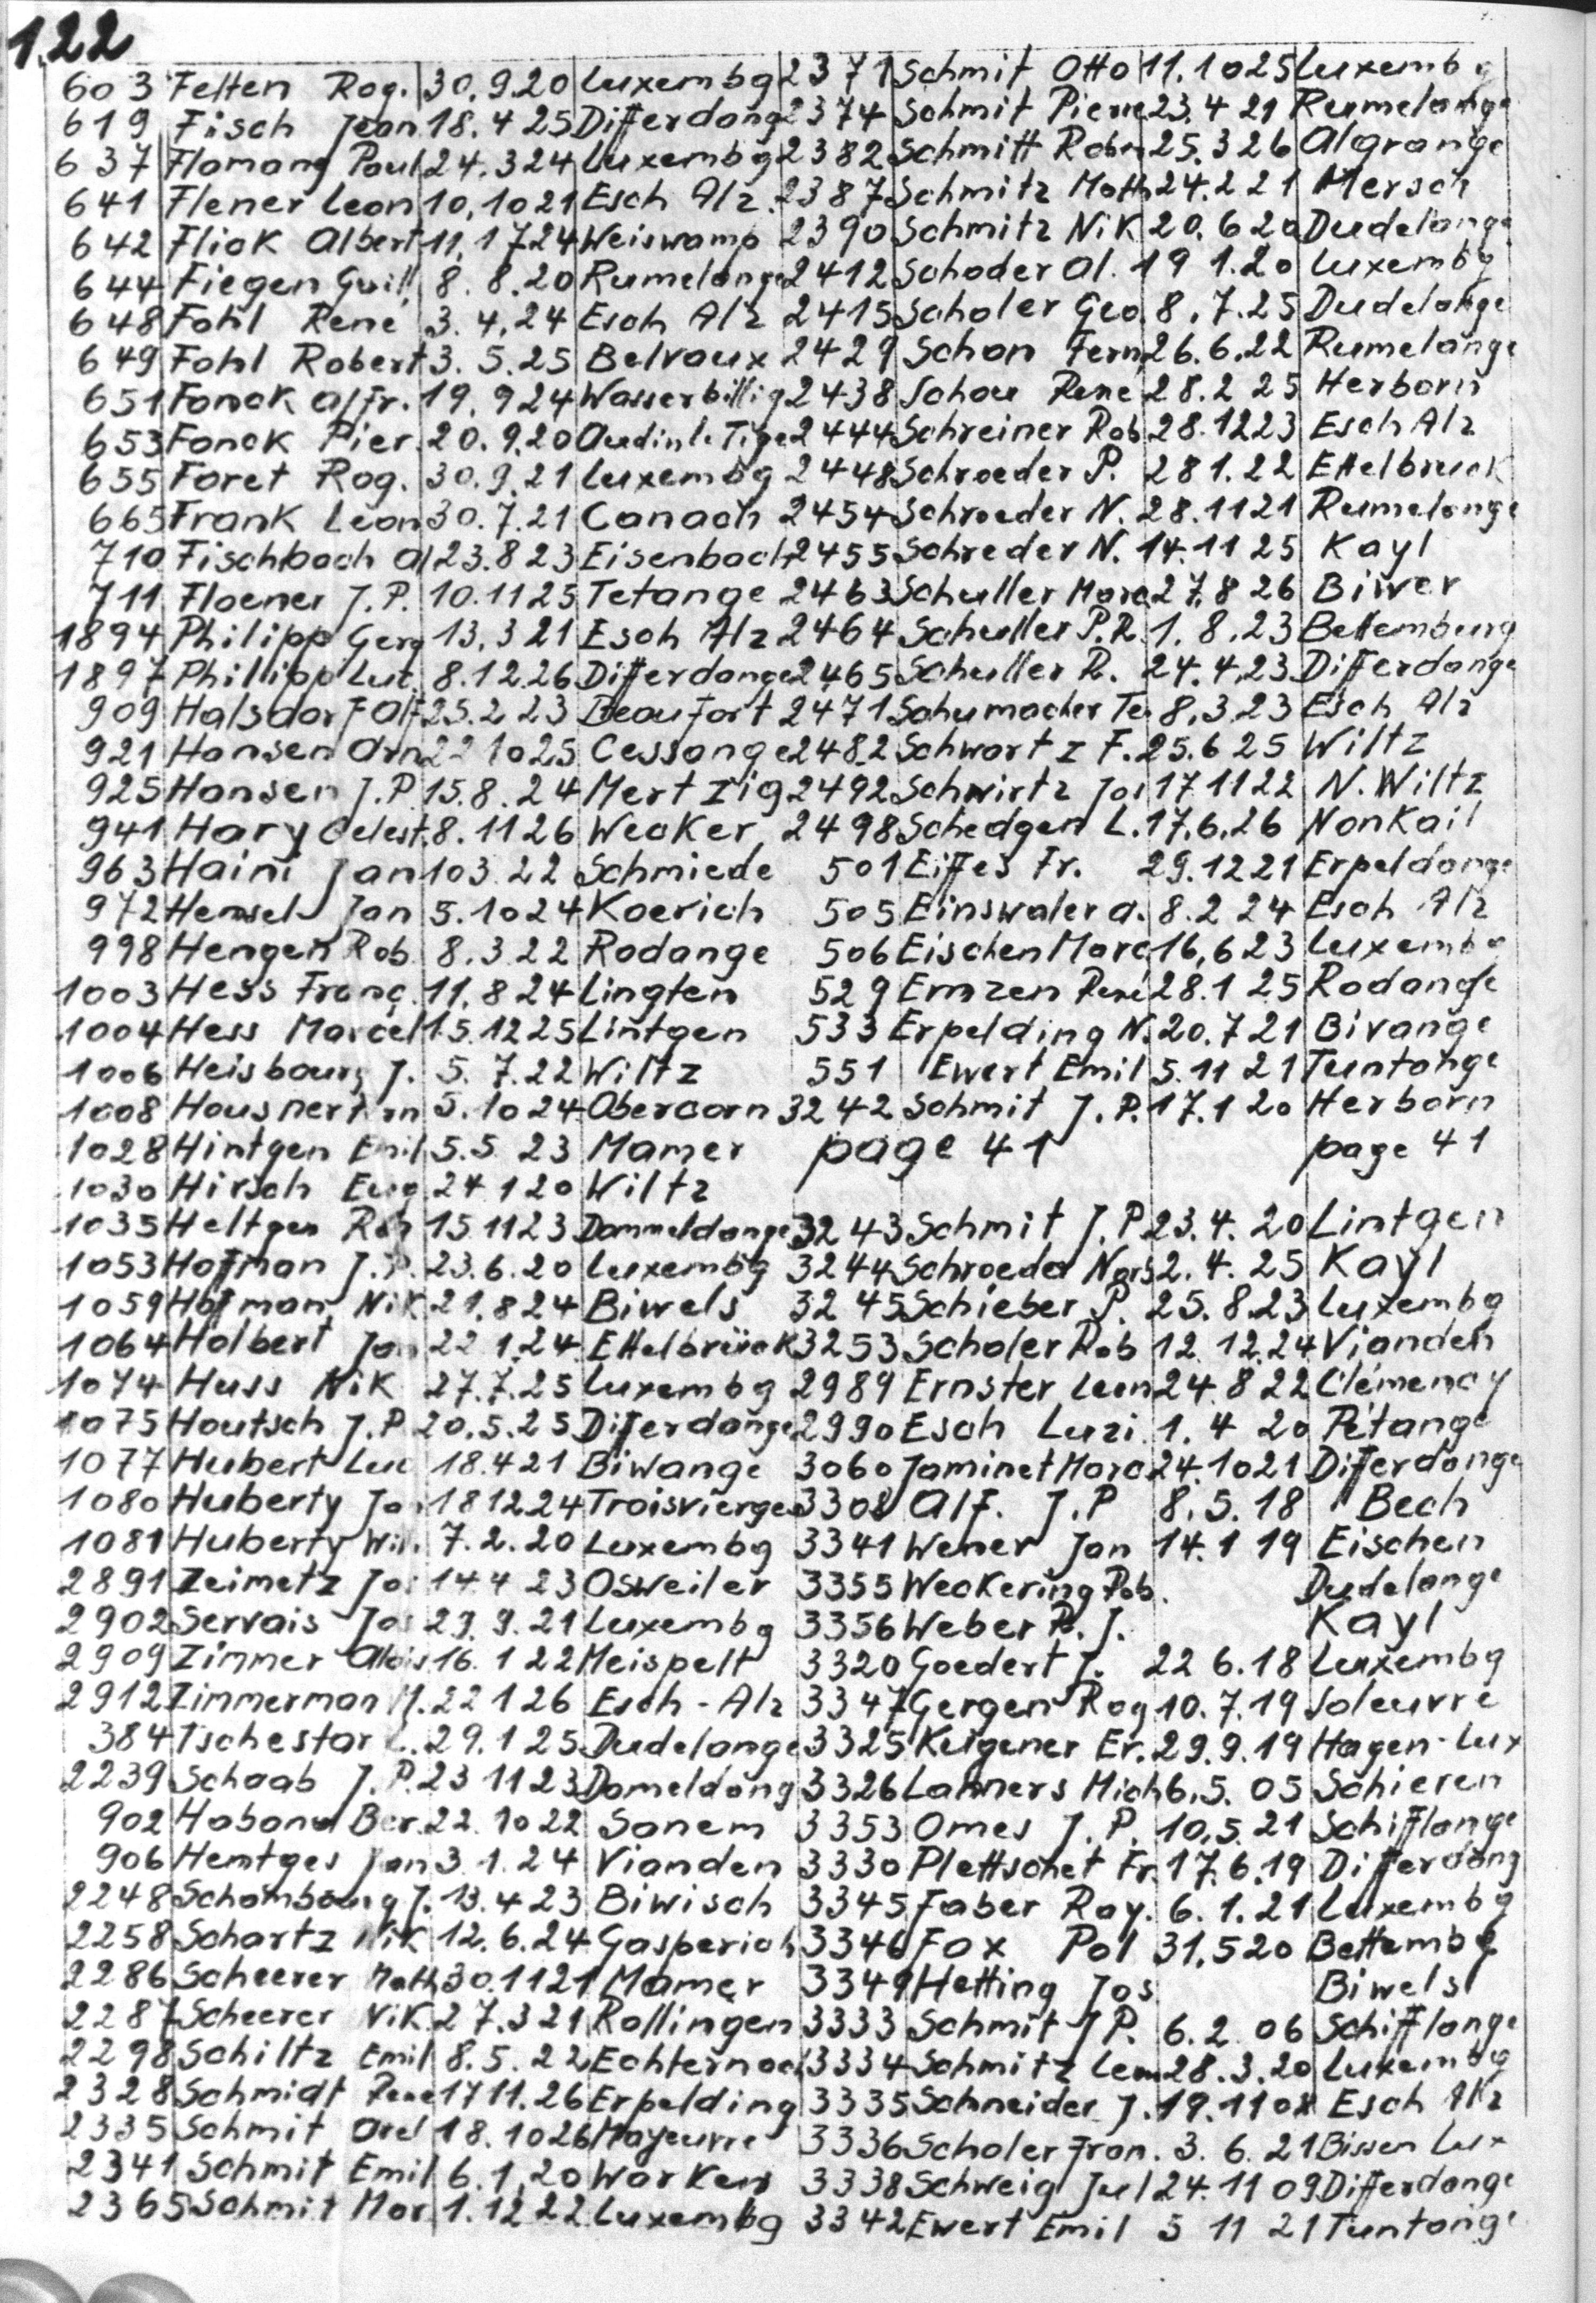 122
603 Felten Rog. 30.9.20 Luxembg 2371 Schmit Otto 11.10 25 Luxembg
619 Fisch Jean 18.4 25 Differdang 2374 Schmit Pierre 23.4 21 Rumelange
637 Flamang Paul 24.3 24 Luxembg 2382 Schmitt Robn 25.3 26 Algrange
641 Flener Leon 10.10 21 Esch Alz. 2387 Schmitz Math 24.2 21 Mersch
642 Flick Albert 11.1 7.24 Weiswamp 2390 Schmitz Nik 20.6 20 Dudelange
644 Fiegen Guill. 8.8.20 Rumelange 2412 Schoder Al. 19 1.20 Luxembg
648 Fohl René 3.4.24 Esch Alz 2415 Scholer Geo 8.7.25 Dudelange
649 Fohl Robert 3.5.25 Belvaux 2429 Schon Fern 26.6.22 Rumelange
651 Fonck Alfr. 19.9 24 Wasserbillig 2438 Schou Rene 28.2 25 Herborn
653 Fonck Pier. 20.9.20 Audinle Tige 2444 Schreiner Rob 28.12 23 Esch Alz
655 Foret Rog. 30.9.21 Luxembg 2448 Schroeder P. 28 1.22 Ettelbruck
665 Frank Leon 30.7.21 Canach 2454 Schroeder N. 28.11 21 Rumelange
710 Fischbach Al 23.8 23 Eisenbach 2455 Schreder N. 14.11 25 Kayl
711 Floener J.P. 10.11 25 Tetange 2463 Schuller Marc 27.8 26 Biwer
1894 Philipp Gerg 13.3 21 Esch Alz 2464 Schuller P.R. 1.8.23 Bettemburg
1897 Phillipp Lut. 8.12.26 Differdange 2465 Schuller R. 24.4.23 Differdange
909 Halsdorf Alf 25.2 23 Beaufort 2471 Schumacher Te 8.3.23 Esch Alz
921 Hansen Arn 22 10 25 Cessange 2482 Schwartz F. 25.6 25 Wiltz
925 Hansen J.P. 15.8.24 Mertzig 2492 Schwirtz Jos 17 11 22 N. Wiltz
941 Hary Celest. 8.11 26 Wecker 2498 Schedgen L. 17.6.26 Nonkail
963 Haini Jan 10 3.22 Schmiede 501 Eiffes Fr. 29.12 21 Erpeldange
972 Hensel Jan 5.10 24 Koerich 505 Einswaler A. 8.2 24 Esch Alz
998 Hengen Rob 8.3 22 Rodange 506 Eischen Marc 16.6 23 Luxembg
1003 Hess Franç. 11.8 24 Lingten 529 Emzen René 28.1 25 Rodange
1004 Hess Marcel 15.12 25 Lintgen 533 Erpelding N. 20.7 21 Bivange
1006 Heisbourg J. 5.7.22 Wiltz 551 Ewert Emil 5.11 21 Tuntange
1008 Hausnert 5.10 24 Obercorn 3242 Schmit J.P. 17.1 20 Herborn
1028 Hintgen Emil 5.5 23 Mamer page 41 page 41
1030 Hirsch Eug 24.1 20 Wiltz
1035 Heltgen 15 11 23 Dommeldange 3243 Schmit J.P 23.4.20 Lintgen
1053 Hofman J.P. 23.6.20 Luxembg 3244 Schroeder Nors 2.4.25 Kayl
1059 Hofman Nik 21.8 24 Biwels 3245 Schieber P. 25.8.23 Luxembg
1064 Holbert Jan 22 1.24 Ettelbrück 3253 Scholer Rob 12.12.24 Vianden
1074 Huss Nik 27.7.25 Luxembg 2989 Ernster Leon 24.8 22 Clémency
1075 Houtsch J.P 20.5.25 Differdange 2990 Esch Luzi 1.4 20 Pétange
1077 Hubert Luc 18.4 21 Biwange 3060 Jaminet Marc 24.10 21 Differdange
1080 Huberty Jos 18 12 24 Troisvierges 3308 Alf. J.P 8.5.18 Bech
1081 Huberty Will. 7.2.20 Luxembg 3341 Wener Jan 14.1 19 Eischen
2891 Zeimetz Jos 14.4 23 Osweiler 3355 Weckering Rob. Dudelange
2902 Servais Jos 29.9.21 Luxembg 3356 Weber P. J. Kayl
2909 Zimmer Alois 16.1 22 Meispelt 3320 Goedert J. 22 6.18 Luxembg
2912 Zimmerman M. 22 1 26 Esch-Alz 3347 Gergen Rog 10.7.19 Soleuvre
384 Tschestar 29.1 25 Dudelange 3325 Keigener Er. 29.9.19 Hagen-Lux
2239 Schaab J.P. 23 11 23 Domeldang 3326 Lanners Mich 6.5.05 Schieren
902 Haband Ber. 22.10 22 Sanem 3353 Omes J.P. 10.5.21 Schifflange
906 Hentges Jan 3.1.24 Vianden 3330 Plettschet Fr. 17.6.19 Differdang
2248 Schombourg J. 13.4 23 Biwisch 3345 Faber Ray. 6.1.21 Luxembg
2258 Schartz Nik 12.6.24 Gasperich 3346 Fox Pol 31.5 20 Bettembg
2286 Scheerer Math 30.11 21 Mamer 3349 Hetting Jos Biwels
2287 Scheerer Nik 27.3 21 Rollingen 3333 Schmit J P. 6.2 06 Schifflange
2298 Schiltz Emil 8.5.22 Echternach 3334 Schmitz Leon 28.3.20 Luxembg
2328 Schmidt Rene 17 11.26 Erpelding 3335 Schneider J. 19.11 08 Esch Alz
2335 Schmit 18.10 26 Mayeuvre 3336 Scholer Fran. 3.6.21 Bissen Lux
2341 Schmit Emil 6.1.20 Warken 3338 Schweig Jul 24.11 09 Differdange
2365 Schmit Mar. 1.12 22 Luxembg 3342 Ewert Emil 5 11 21 Tuntange